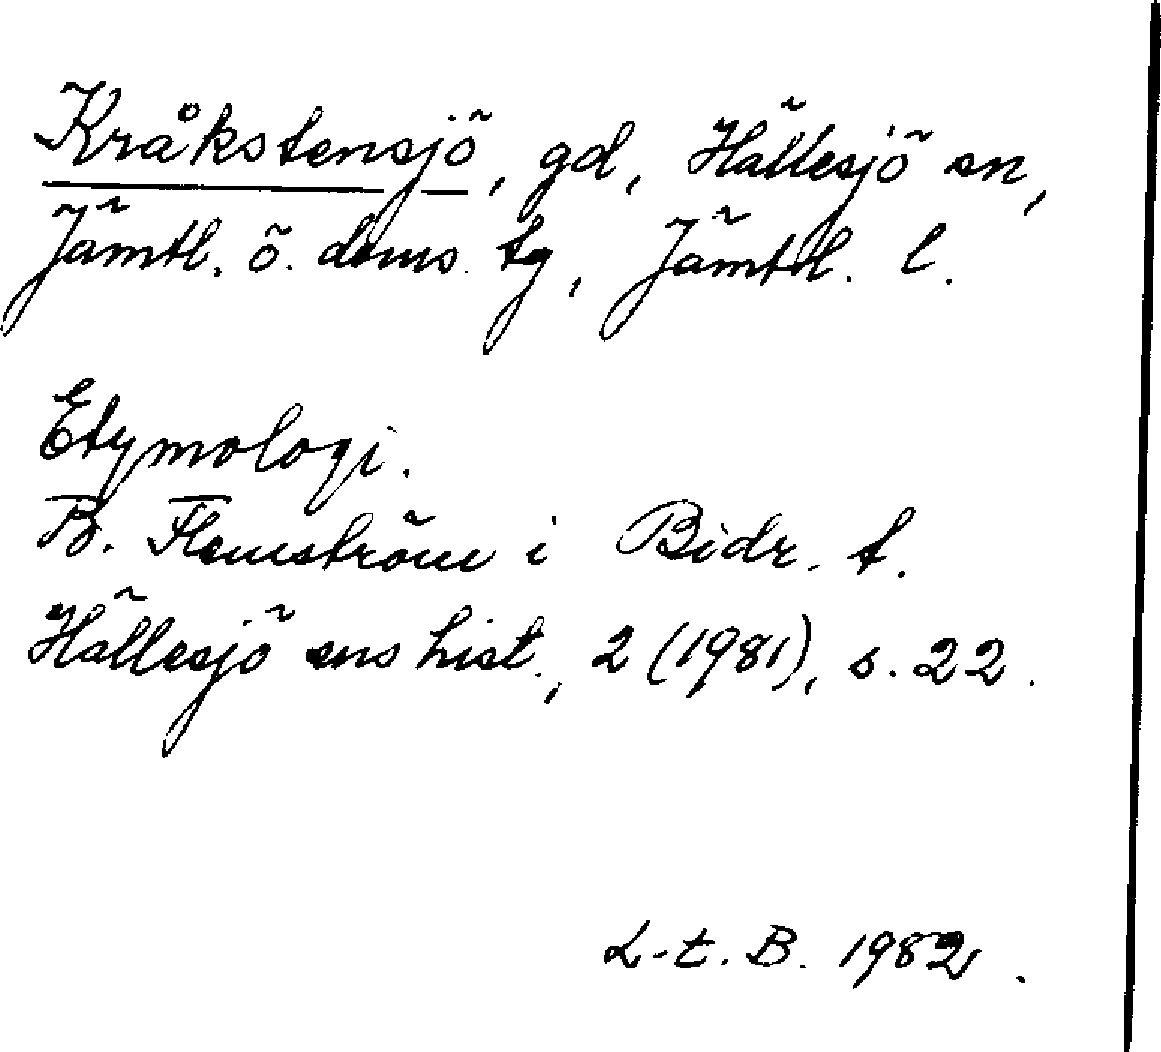 Kråkstensjö, gd, Hällesjö sn,
Jämtl. ö. doms. tg, Jämtl. l.
Etymologi.
B. Flemström i Bidr. t.
Hällesjö sns hist., 2 (1981), s. 22.
L-t. B. 1982.